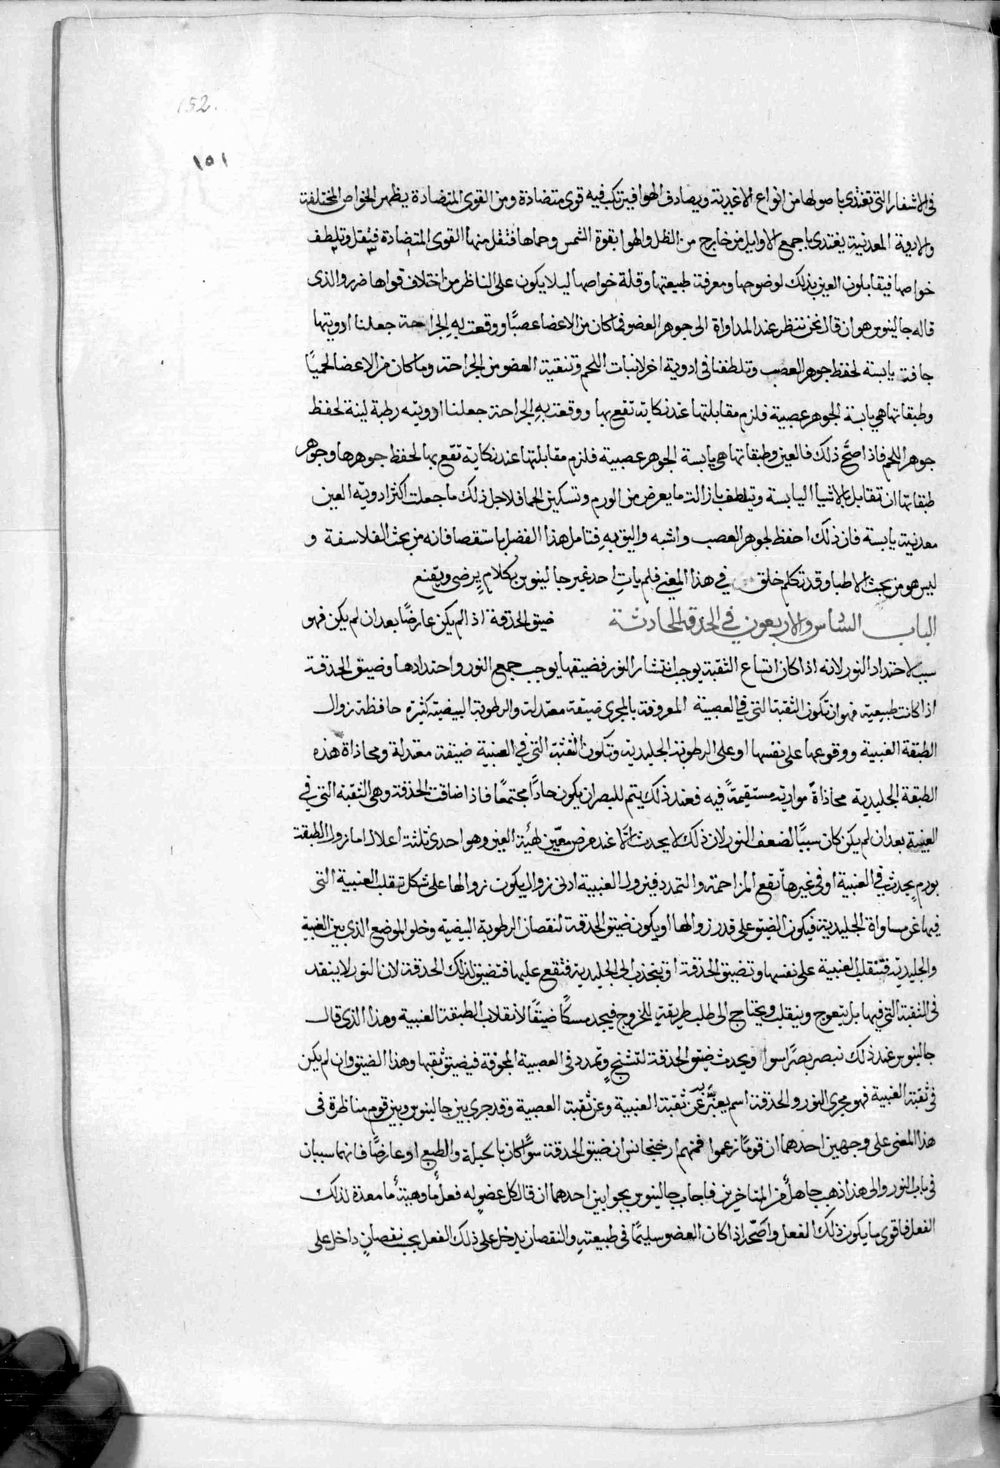 152.
١٥١
في الاشفار التي تغتذي باصولها من انواع الاغذية ويصادف الهوا فيتركب فيه قوى متضادة ومن القوى المتضادة يظهر الخواص المختلفة
والادوية المعدنية يغتذي باجمع الاوايل من خارج من الظل والهوا بقوة الشمس وحماها فتثقل منها القوى المتضادة فيثقل وتلطف
خواصها فيقابلون العين بذلك لوضوحها ومعرفة طبيعتها وقلة خواصها ليلا يكون على الناظر من اختلاف قواها ضرر والذي
قاله جالينوس هو ان قال نحن ننظر عند المداواة الى جوهر العضو فما كان من الاعضا عصبًا ووقعت به الجراحة جعلنا ادويتها
جافة يابسة لحفظ جوهر العصب وتلطفنا في ادوية اخر لانبات اللحم وتنقية العضو من الجراحة، وما كان من الاعضا لحميًا
وطبقاتها هي يابسة الجوهر عصبية فلزم مقابلتها عند نكاية تقع بها ووقعت به الجراحة جعلنا ادويته رطبة لينة لحفظ
جوهر اللحم فاذا صحّ ذلك فالعين وطبقاتها هي يابسة الجوهر عصبية فلزم مقابلتها عند نكاية تقع بها لحفظ جوهرها وجوهر
طبقاتها ان تقابل بالاشيا اليابسة وتلطف بازالت ما يعرض من الورم وتسكين الحما فلاجل ذلك ما جعلت اكثر ادويه العين
معدنية يابسة فان ذلك احفظ لجوهر العصب واشبه واليق به فتامل هذا الفصل باستقصا فانه من بحث الفلاسفة و
ليس هو من بحث الاطبا وقد تكلم خلق في هذا المعني فلم يات احد غير جالينوس بكلام يرضى ويقنع
الباب السادس والاربعون في الحدقة الحادثة ضيق الحدقة اذا لم يكن عارضًا بعد ان لم يكن فهو
سبب لاحتداد النور لانه اذا كان اتساع الثقبة يوجب انتشار النور فضيقها يوجب جمع النور واحتدادها وضيق الحدقة
اذا كانت طبيعية فهو ان تكون الثقبة التي في العصبة المعروفة بالمجرى ضيقة معتدلة والرطوبة البيضية كثيرة حافظة زوال
الطبقة العنبية ووقوعها على نفسها او على الرطوبة الجليدية وتكون الثقبة التي في العنبية ضيقة معتدلة ومحاذاة هذه
الطبقة الجليدية محاذاةً موازية مستقيمةً فيه فعند ذلك يتم للبصر ان يكون حادًا مجتمعًا فاذا ضاقت الحدقة وهي الثقبة التي في
العنبية بعد ان لم يكن كان سببًا لضعف النور لان ذلك لا يحدث الّا عند عرض معيّن لهيئة العين وهو احدى ثلثة اعلال اما زوال الطبقة
بورم يحدث في العنبية او في غيرها يقع المزاحمة والتمدد فيزول العنبية ادنى زوال يكون زوالها على شكل تقلب العنبية التي
فيها عن مساواة الجليدية فيكون الضيق على قدر زوالها او يكون ضيق الحدقة لنقصان الرطوبة البيضية وخلو الموضع الذي بين العنبية
والجليدية فتنقلب العنبية على نفسها وتضيق الحدقة او ينجذب الى الجليدية فتقع عليها فتضيق لذلك الحدقة لان النور لا ينفد
في الثقبة التي فيها بل يتعوج وينقلب ويحتاج الى طلب طريقة للخروج فيجد مسلكًا ضيقًا لانقلاب الطبقة العنبية وهذا الذي قال
جالينوس عند ذلك تبصر بصرًا سوا ويحدث ضيق الحدقة لتشنج وتمدد في العصبية المجوفة فيضيق ثقبها وهذا الضيق وان لم يكن
في ثقبة العنبية فهو مجرى النور والحدقة اسم يعبّر به عن ثقبة العنبية وعن ثقبة العصبية وقد جرى بين جالينوس وبين قوم مناظرة في
هذا المعنى على وجهين احدهما ان قومًا زعموا فمنهم ارخيجانس ان ضيق الحدقة سوًا كان بالجبلة والطبع او عارضًا فانهما سببان
في باب النور والى هذا ذهب جاهلٌ من المتاخرين فاجاب جالينوس بجوابين احدهما ان قال لكل عضو له فعل ما وهيئة ما معدة لذلك
الفعل فاقوى ما يكون ذلك الفعل واصحّه اذا كان العضو سليمًا في طبيعته والنقصان يدخل على ذلك الفعل بحسب نقصان داخل على